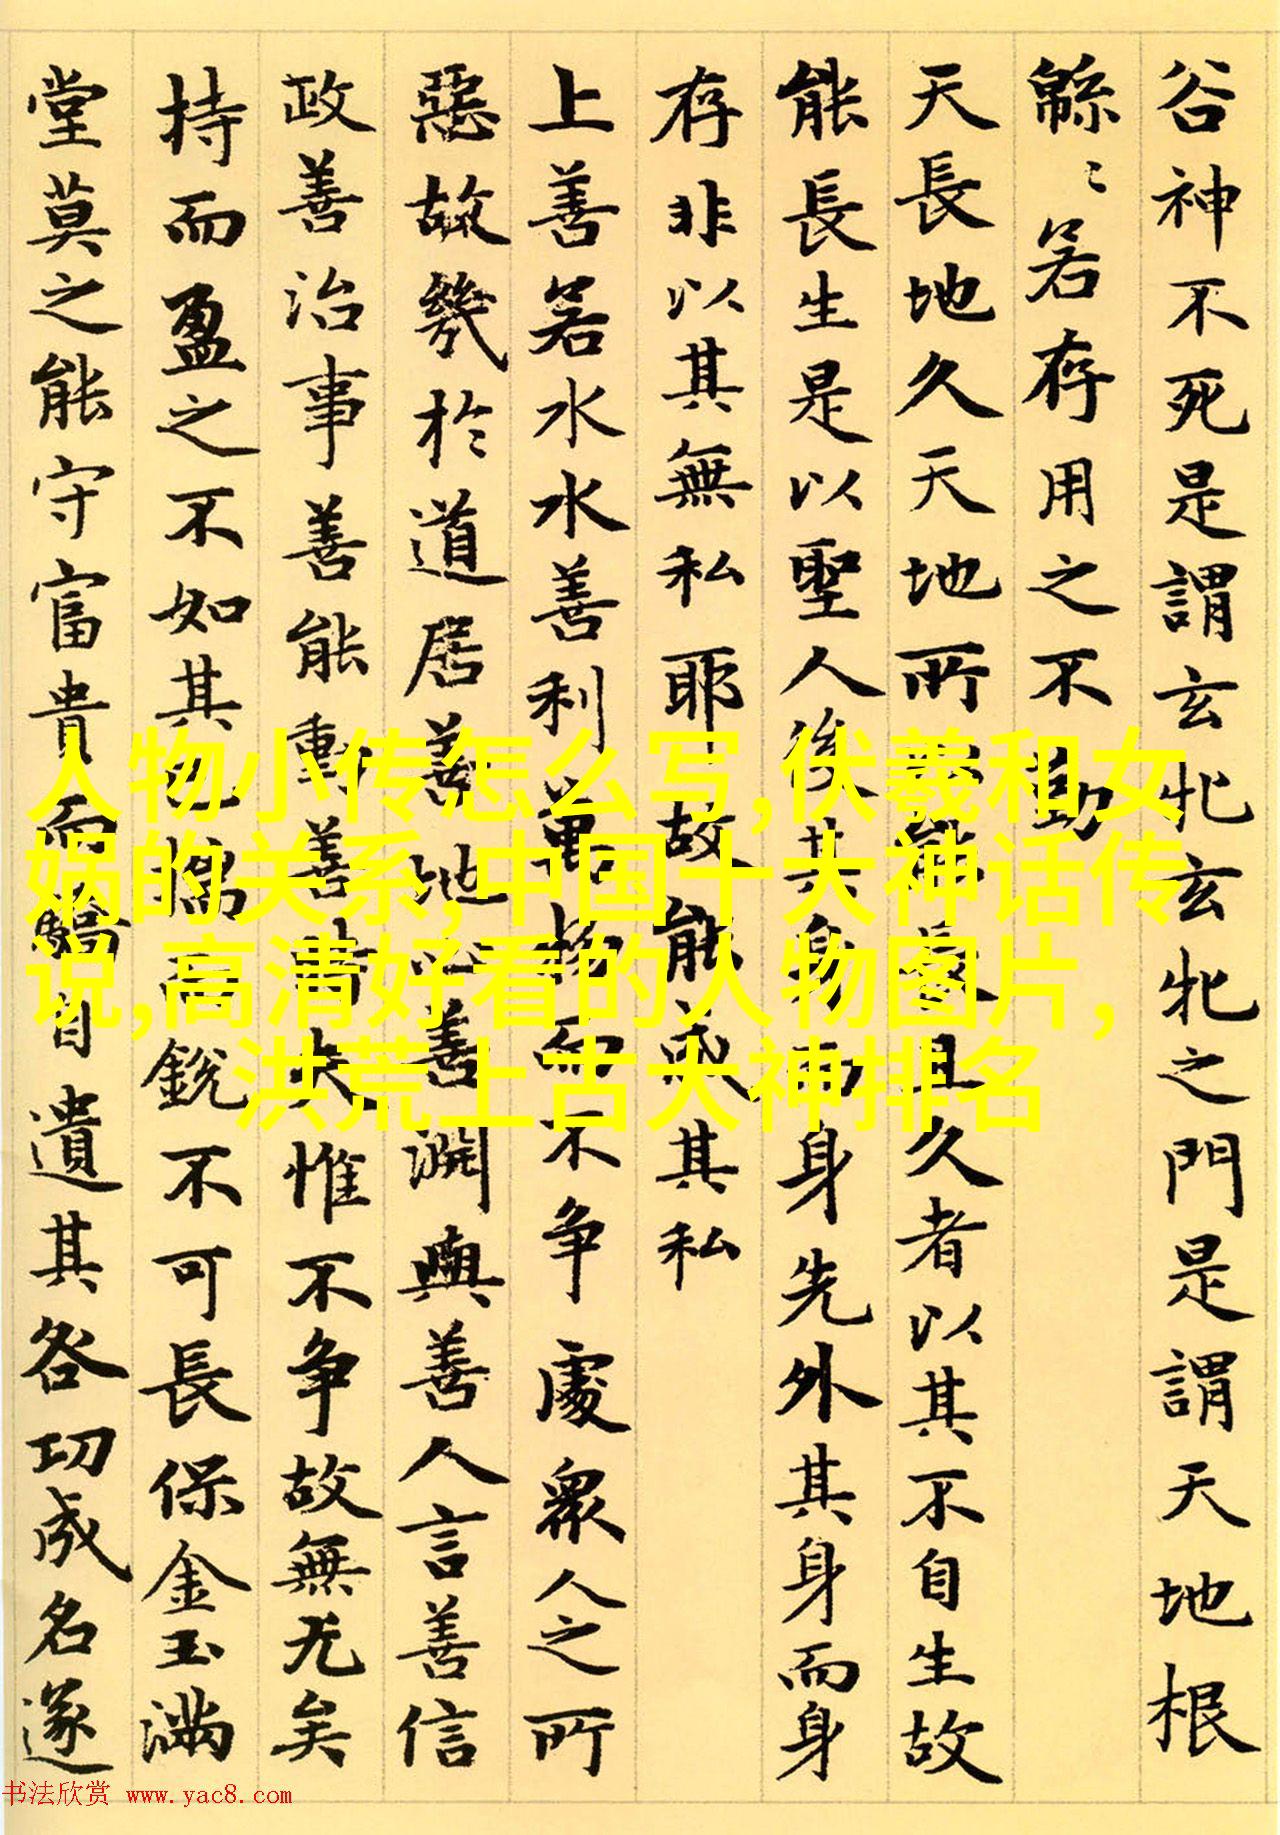 谷神不死是謂玄牝玄牝之門是謂天地根
緜〻若存用之不勤
天長地久天地所以能長且久者以其不自生故
能長生是以聖人後其身而身先外其身而身
存非以其無私耶故能成其私
上善若水水善利萬物而不争處衆人之所
惡故幾於道居善地心善渊與善人言善信
政善治事善能動善時夫惟不争故無尤矣
持而盈之不如其已揣而銳不可長保金玉滿
堂莫之能守富貴而驕自遺其咎功成名遂
人物小传怎么写,伏羲和女
娲的关系,中国十大神话传
说,高清好看的人物图片,
洪荒上古大神排名
书法欣赏 www.yac8.com